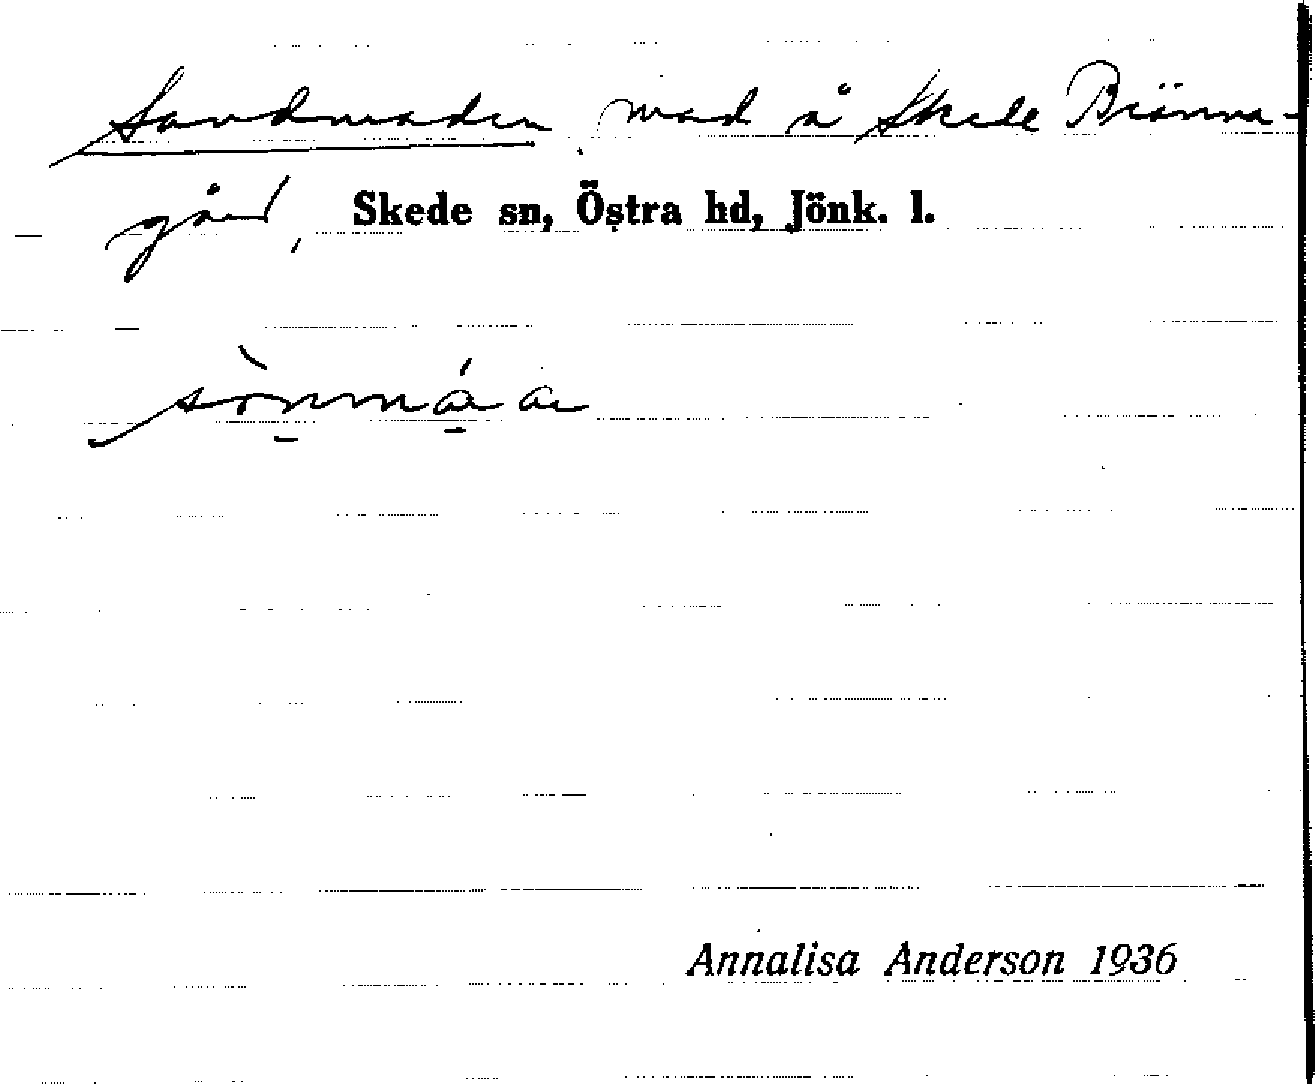 Sandmaden, mad å Skede Bränna-
gård, Skede sn, Östra hd, Jönk. l.
Annalisa Anderson 1936